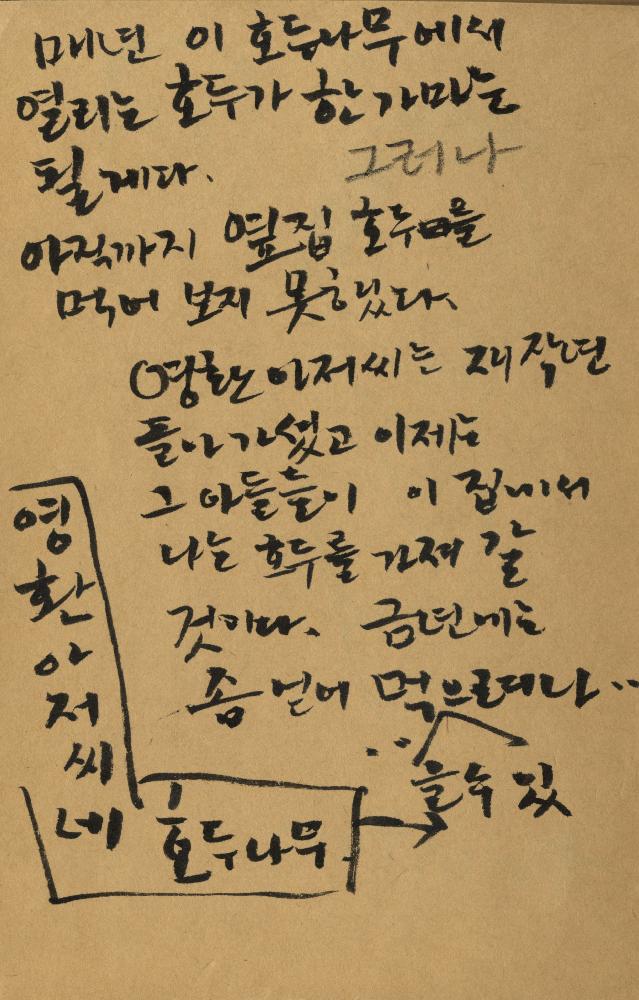 매년 이 호두나무에서
열리는 호두가 한 가마는
될 게다. 그러나
아직까지 옆집 호두를
먹어 보지 못했다.
영환 아저씨는 재작년
돌아가셨고 이제는
그 아들들이 이 집에서
나는 호두를 가져 갈
것이다. 금년에는
좀 얻어 먹으려나..
..을 수 있
영환아저씨네
호두나무